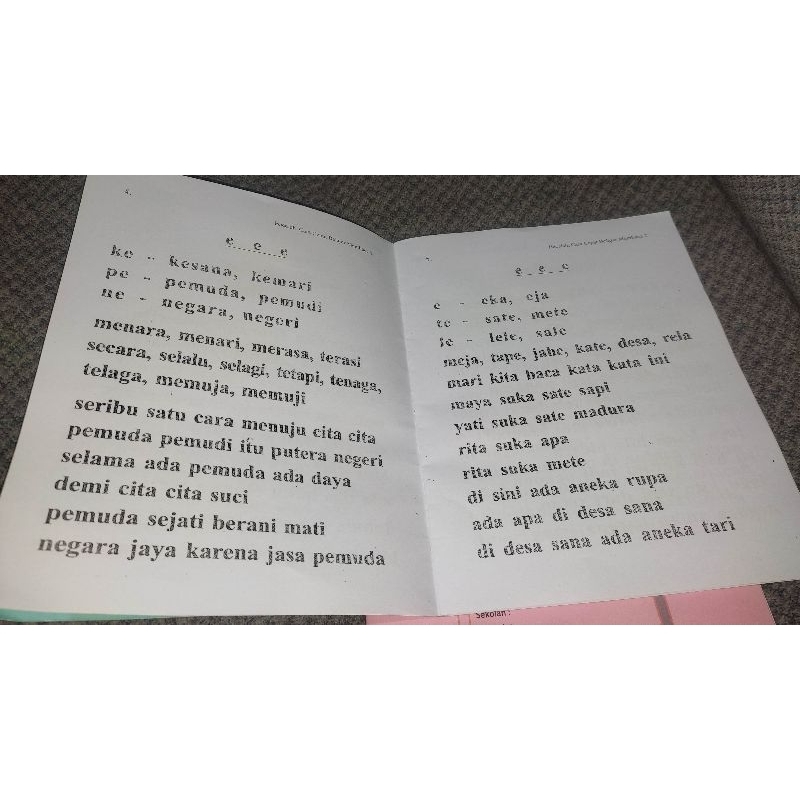 e e e
ke - kesana, kemari
pe - pemuda, pemudi
ne - negara, negeri
menara, menari, merasa, terasi
secara, selalu, selagi, tetapi, tenaga,
telaga, memuja, memuji
seribu satu cara menuju cita cita
pemuda pemudi itu putera negeri
selama ada pemuda ada daya
demi cita cita suci
pemuda sejati berani mati
negara jaya karena jasa pemuda
e e e
e - eka, eja
te - sate, mete
le - lele, sale
meja, tape, jahe, kate, desa, rela
mari kita baca kata kata ini
maya suka sate sapi
yati suka sate madura
rita suka apa
rita suka mete
di sini ada aneka rupa
ada apa di desa sana
di desa sana ada aneka tari
Sekolah :